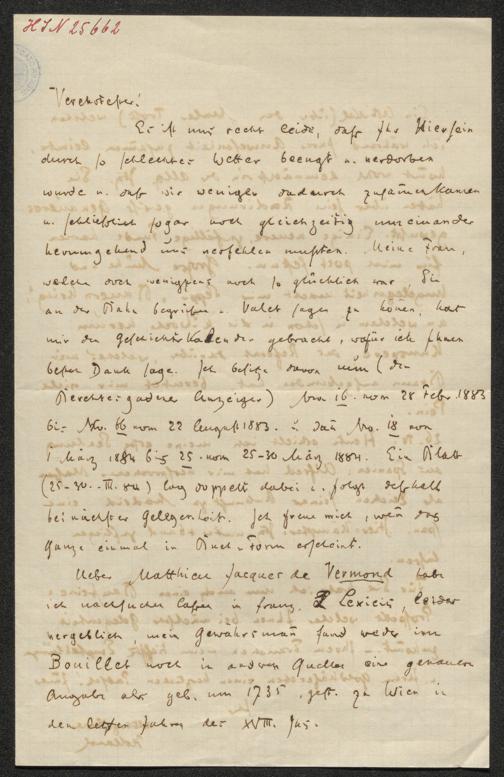 HIN 25662
Verehrtester!
Es ist uns recht leide, daß Ihr Hiersein
durch so schlechtes Wetter beengt u. verdorben
wurde u. daß wir weniger dadurch zusam̅enkamen
u. schließlich sogar noch gleichzeitig umeinander
herumgehend uns verfehlen mußten. Meine Frau,
welche doch wenigstens noch so glücklich war, Sie
an der Bahn begrüßen u. Valet sagen zu kön̅en, hat
mir den Geschichtskalender gebracht, wofür ich Ihnen
besten Dank sage. Ich besitze davon nun (den
Berchtesgadener Anzeiger) Nro 16. vom 28 Febr. 1883
bis Nro. 66 vom 22 August 1883. u. dan̅ No. 18 von
1. März 1884 bis 25. vom 25-30 März 1884. Ein Blatt
(25-30. III. 84) lag doppelt dabei u. folgt deßhalb
bei nächster Gelegenheit. Ich freue mich, wen̅ das
Ganze einmal in Buch-Form erscheint.
Ueber Matthieu Jacques de Vermond habe
ich nachsuchen lassen in franz. Lexicis, leider
vergeblich, mein Gewährsman̅ fand weder im
Bouillet noch in anderen Quellen eine genauere
Angabe als geb. um 1735, gest. zu Wien in
den letzten Jahren des XVIII. Jhs.